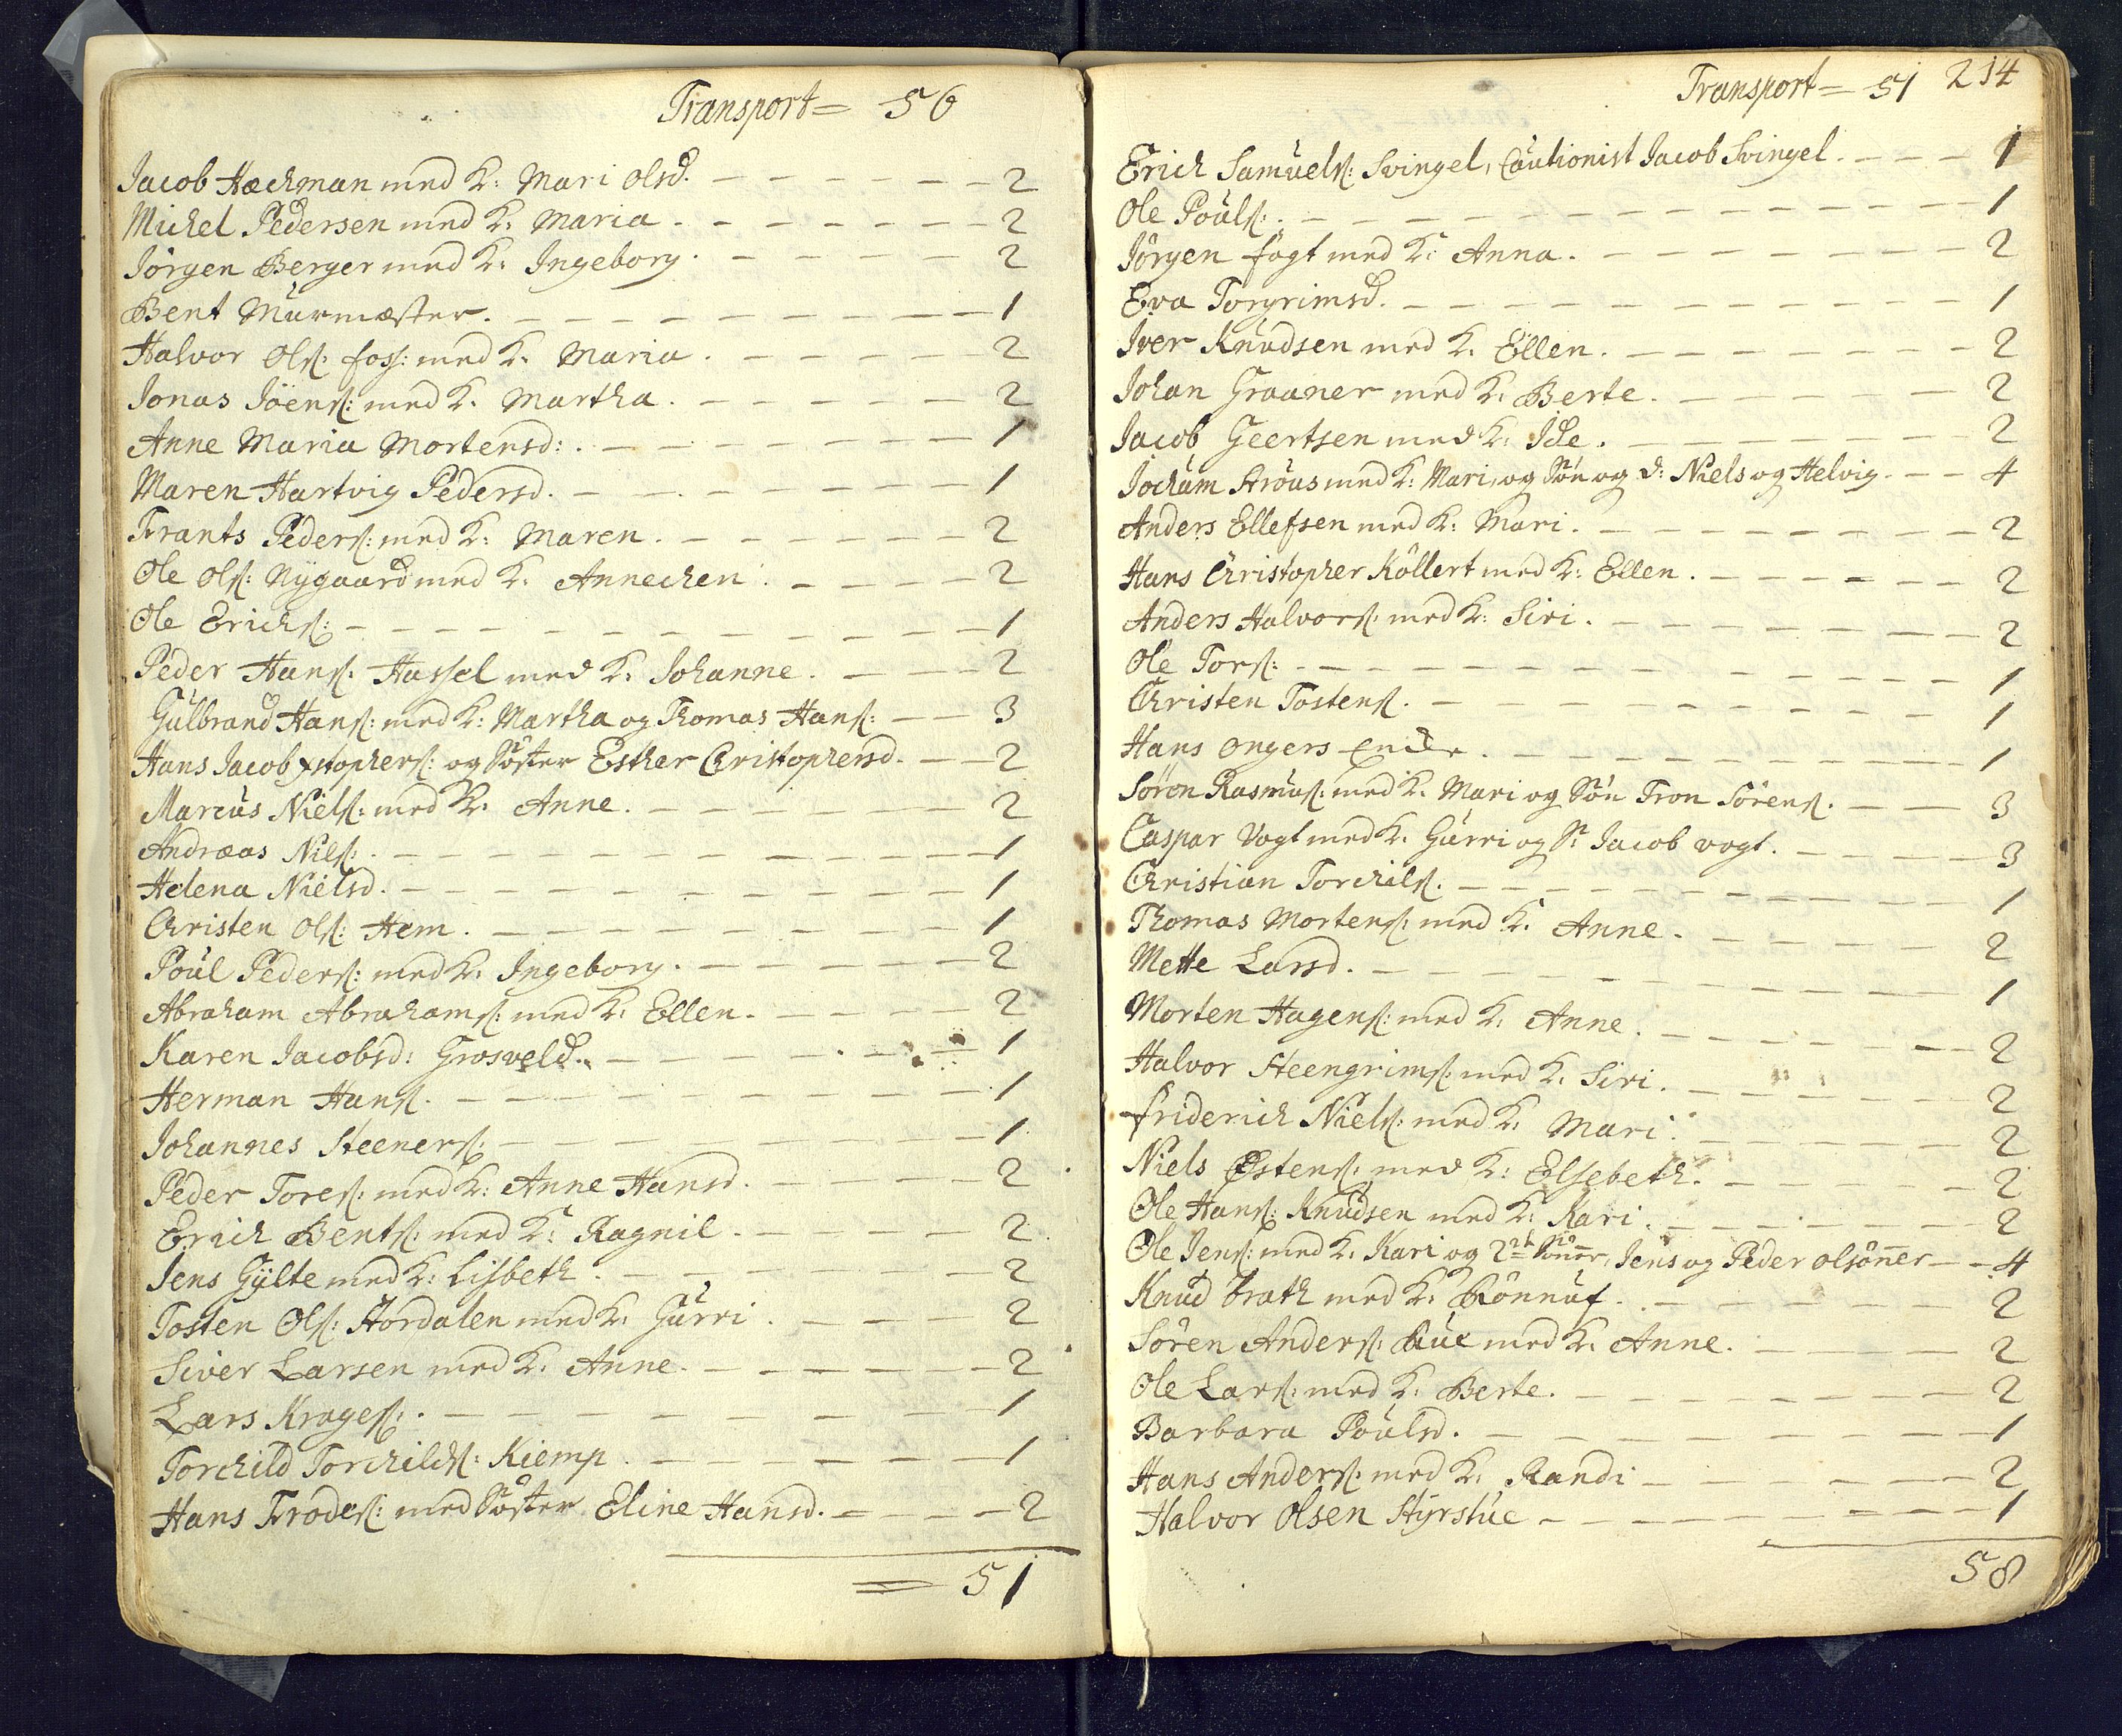 Transport= 56
Jacob Hæchman med K: Mari Olsd. 2
Michel Pedersen med K: Maria. 2
Jörgen Berger med K: Ingeborg. 2
Bent Murmæster. 1
Halvor Ols: foss: med K: Maria. 2
Jonas Jöens: med K. Martha. 2
Anne Maria Mortensd:. 1
Maren Hartvig Pedersd. 1
Frants Peders: med K: Maren. 2
Ole Ols: Nÿgaard med K: Annechen. 2
Ole Erichs: 1
Peder Hans: Hassel med K: Johanne. 2
Gulbrand Hans: med K: Martha og Thomas Hans: 3
Hans Jacob Xstophers: og Söster Esther Christophersd. 2
Marcus Niels: med K: Anne. 2
Andræas Nils: 1
Helena Nielsd. 1
Christen Ols: Hem. 1
Poul Peders: med K: Ingeborg. 2
Abraham Abrahams: med K: Ellen. 2
Karen Jacobsd: Grosveld. 1
Herman Hans. 1
Johannes Steeners: 1
Peder Tores: med K: Anne Hansd. 2
Erich Bents: med K: Ragnil. 2
Jens Gÿlte med K: Lisbeth. 2
Tosten Ols: Hordalen med K: Gurri. 2
Siver Larsen med K: Anne. 2
Lars Krages: 1
Torchild Torchilds: Kiemp. 1
Hans Frodes: med Söster Eline Hansd. 2
= 51
Transport= 51 214
Erich Samuels: Svingel, Cautionist Jacob Svingel. 1
Ole Pouls: 1
Jörgen fogt med K: Anna. 2
Eva Torgrimsd. 1
Iver Knudsen med K. Ellen. 2
Johan Graaner med K: Berte. 2
Jacob Geertsen med K: Ide. 2
Jochum Strous med K: Mari, og Sön og D: Niels og Helvig. 4
Anders Ellefsen med K: Mari. 2
Hans Christopher Köllert med K: Ellen. 2
Anders Halvors: med K: Siri. 2
Ole Tors: 1
Christen Tostens. 1
Hans Ongers 1
Sören Rasmus: med K: Mari og Sön Tron Sörens. 3
Caspar Vogt med K: Gurri og S: Jacob vogt. 3
Christian Torchils. 1
Thomas Mortens: med K: Anne. 2
Mette Larsd. 1
Morten Hagens: med K: Anne. 2
Halvor Steengrims: med K: Siri. 2
friderich Niels: med K: Mari. 2
Niels Östens: med K: Elsebeth. 2
Ole Hans: Knudsen med K: Kari. 2
Ole Jens: med K: Kari og 2de Sönner, Jens og Peder Olsönner 4
Knud brath med K: Rönnuf. 2
Sören Anders: Rue med K: Anne. 2
Ole Lars: med K: Berte. 2
Barbara Poulsd. 1
Hans Anders: med K: Randi 2
Halvor Olsen Stÿrstue 1
58